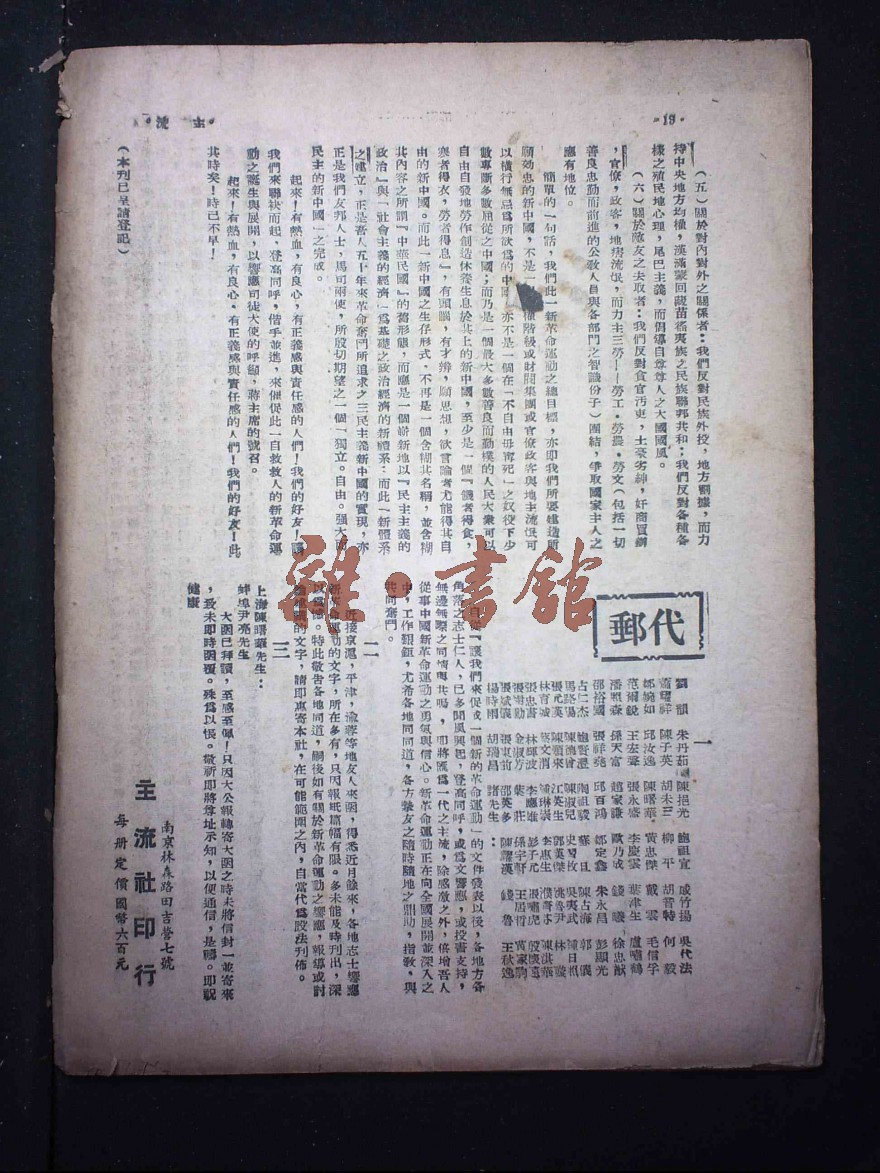 ·19·
主流
（五）關於對內對外之關係者：我們反對民族外投，地方割據，而力
持中央地方均權，漢滿蒙回藏苗徭夷族之民族聯邦共和；我們反對各種各
樣之殖民地心理，尾巴主義，而倡導自尊尊人之大國國風。
（六）關於敵友之去取者：我們反對貪官汚吏，土豪劣紳，奸商買辦
，官僚，政客，地痞流氓，而力主三勞——勞工·勞農·勞文（包括一切
善良忠勤而前進的公敎人員與各部門之智識份子）團結，爭取國家主人之
應有地位。
簡單的一句話，我們此一新革命運動之總目標，亦即我們所要建造所
願効忠的新中國，不是一 權階級或財閥集團或官僚政客與地主流氓可
以橫行無忌爲所欲爲的中 亦不是一個在「不自由毋寧死」之奴役下少
數專斷多數屈從之中國；而乃是一個最大多數善良而勤樸的人民大衆可以
自由自發地勞作創造休養生息於其上的新中國，至少是一個『饑者得食，
寒者得衣，勞者得息』，有頭腦，有才辨，願思想，欲言論者尤能得其自
由的新中國。而此一新中國之生存形式，不再是一個含糊其名稱，並含糊
其內容之所謂『中華民國』的舊形態，而應是一個嶄新地以『民主主義的
政治』與「社會主義的經濟」爲基礎之政治經濟的新體系：而此一新體系
之建立，正是吾人五十年來革命奮鬥所追求之三民主義新中國的實現，亦
正是我們友邦人士，馬司兩使，所殷切期望之一個「獨立。自由。强大而
民主的新中國」之完成。
起來！有熱血，有良心，有正義感與責任感的人們！我們的好友！讓
我們來聯袂而起，登高同呼，偕手並進，來催促此一自救救人的新革命運
動之誕生與展開，以響應司徒大使的呼籲，蔣主席的號召。
起來！有熱血，有良心，有正義感與責任感的人們！我們的好友！此
其時矣！時已不早！
（本刊已呈請登記）
代郵
一
劉韻 朱丹茹 陳挹光 鮑祖宣 戚竹揚 吳代法
蕭耀祥 陳子英 胡未三 柳平 胡晋特 何毅
鄭婉如 邱汝逸 陳曙華 黃忠傑 戴雲 毛信孚
范爾銳 王宏聲 張永盛 李慶雲 葉津生 盧嘯鶴
潘照森 孫天富 趙家謙 歐乃成 錢曦 徐忠猷
邵裕國 張祥堯 邱百鴻 鄭定鑫 朱永昌 彭顯光
古仁杰 蘇旦 陳占海 郭儀
馬 陳 陳淑兒 史習枚 吳夷武 陳日照
張元漢 陳 江英生 郭英傑 姚魯尹 林葵
林育城 李惠生 濮齊本 陳淇華
張忠書 林輝波 李應進 彭子元 張嘯虎
張嘯勤 金淑芳 葉莊 孫宇軒 王居哲 黃家駒
張斌儀 張東前 邵英多 陳耀漢 錢魯 王秋逸
楊時雨 胡瑞昌 諸先生：
自從『讓我們來促成一個新的革命運動」的文件發表以後，各地方各
角落之志士仁人，已多聞風興起，登高同呼，或爲文響應，或投書支持，
無邊無際之同情與共鳴，卽將匯爲一代之主流，除感激之外，倍增吾人
從事中國新革命運動之勇氣與信心。新革命運動正在向全國展開並深入之
中，工作艱鉅，尤希各地同道，各方摯友之隨時隨地之鼎助，指敎，與
共同奮鬥。
二
近接京滬，平津，瀋蓉等地友人來函，得悉近月餘來，各地志士響應
新革命運動的文字，所在多有，只因報紙篇幅有限。多未能及時刊出，深
以爲憾。特此敬告各地同道，嗣後如有關於新革命運動之響應，報導或討
論建議的文字，請即惠寄本社，在可能範圍之內，自當代爲設法刋佈。
三
上海陳曙華先生：
蚌埠尹亮先生
大函已拜讀，至感至佩！只因大公報轉寄大函之時未將信封一並寄來
，致未即時函覆。殊爲以悵。敬祈即將尊址示知，以便通信，是禱。即祝
健康
主流社印行
南京林森路田吉營七號
每册定價國幣六百元
雜·書館